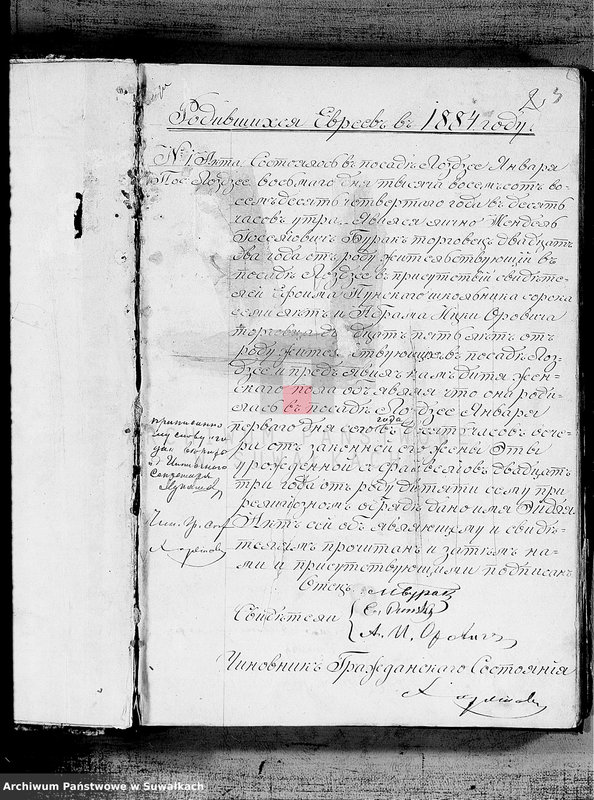 Родившихся Евреевъ въ 1884 году.
№ 1 Акта. Состоялось въ посадѣ Лоздзее Января
Пос. Лоздзее восьмаго дня тысяча восемьсотъ во-
семьдесятъ четвертаго года въ десять
часовъ утра. Явился лично Мендель
Буракъ торговецъ двадцать
два года отъ роду жительствующій въ
посадѣ Лоздзее въ присутствіи свидѣте-
лей Пунскаго школьника сорока
семи лѣтъ и Абрама Ицки Оровича
торговца двадцать пять лѣтъ отъ
роду жительствующихъ въ посадѣ Лоз-
дзее и предъявилъ намъ дитя жен-
скаго пола объявляя что она роди-
лась въ посадѣ Лоздзее Января
перваго дня сего года въ десять часовъ вече-
ра отъ законной его жены
урожденной двадцать
три года отъ роду дитяти сему при
религіозномъ обрядѣ дано имя
Актъ сей объявляющему и свидѣ-
телямъ прочитанъ и затѣмъ на-
ми и присутствующими подписанъ
Отецъ МБуракъ
Свидѣтели
А. И. Оровичъ
Чиновникъ Гражданскаго Состоянія
Archiwum Państwowe w Suwałkach